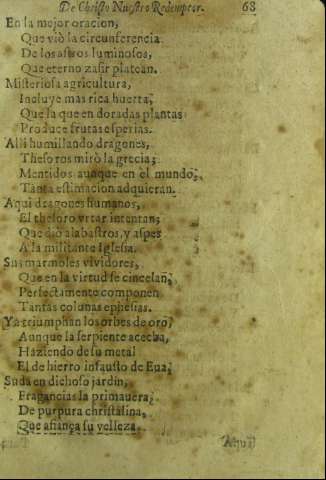 De Christo Nuestro Redemptor. 68
En la mejor oracion,
Que viò la circunferencia
De los astros luminosos,
Que eterno zafir platean.
Misteriosa agricultura,
Incluye mas rica huerta,
Que la que en doradas plantas
Produce frutas esperias.
Alli humillando dragones,
Thesoros mirò la grecia;
Mentidos aunque en el mundo,
Tanta estimacion adquieran.
Aqui dragones humanos,
El thesoro vrtar intentan;
Que diò alabastros, y aspes
A la militante Iglesia.
Sus marmoles vividores,
Que en la virtud se cincelan,
Perfectamente componen
Tantas colunas ephesias.
Ya triumphan los orbes de oro,
Aunque la serpiente acecha,
Haziendo de su metal
El de hierro infausto de Eua;
Suda en dichoso jardin,
Fragancias la primauera,
De purpura christalina,
Que afiança su velleza.
Aqui